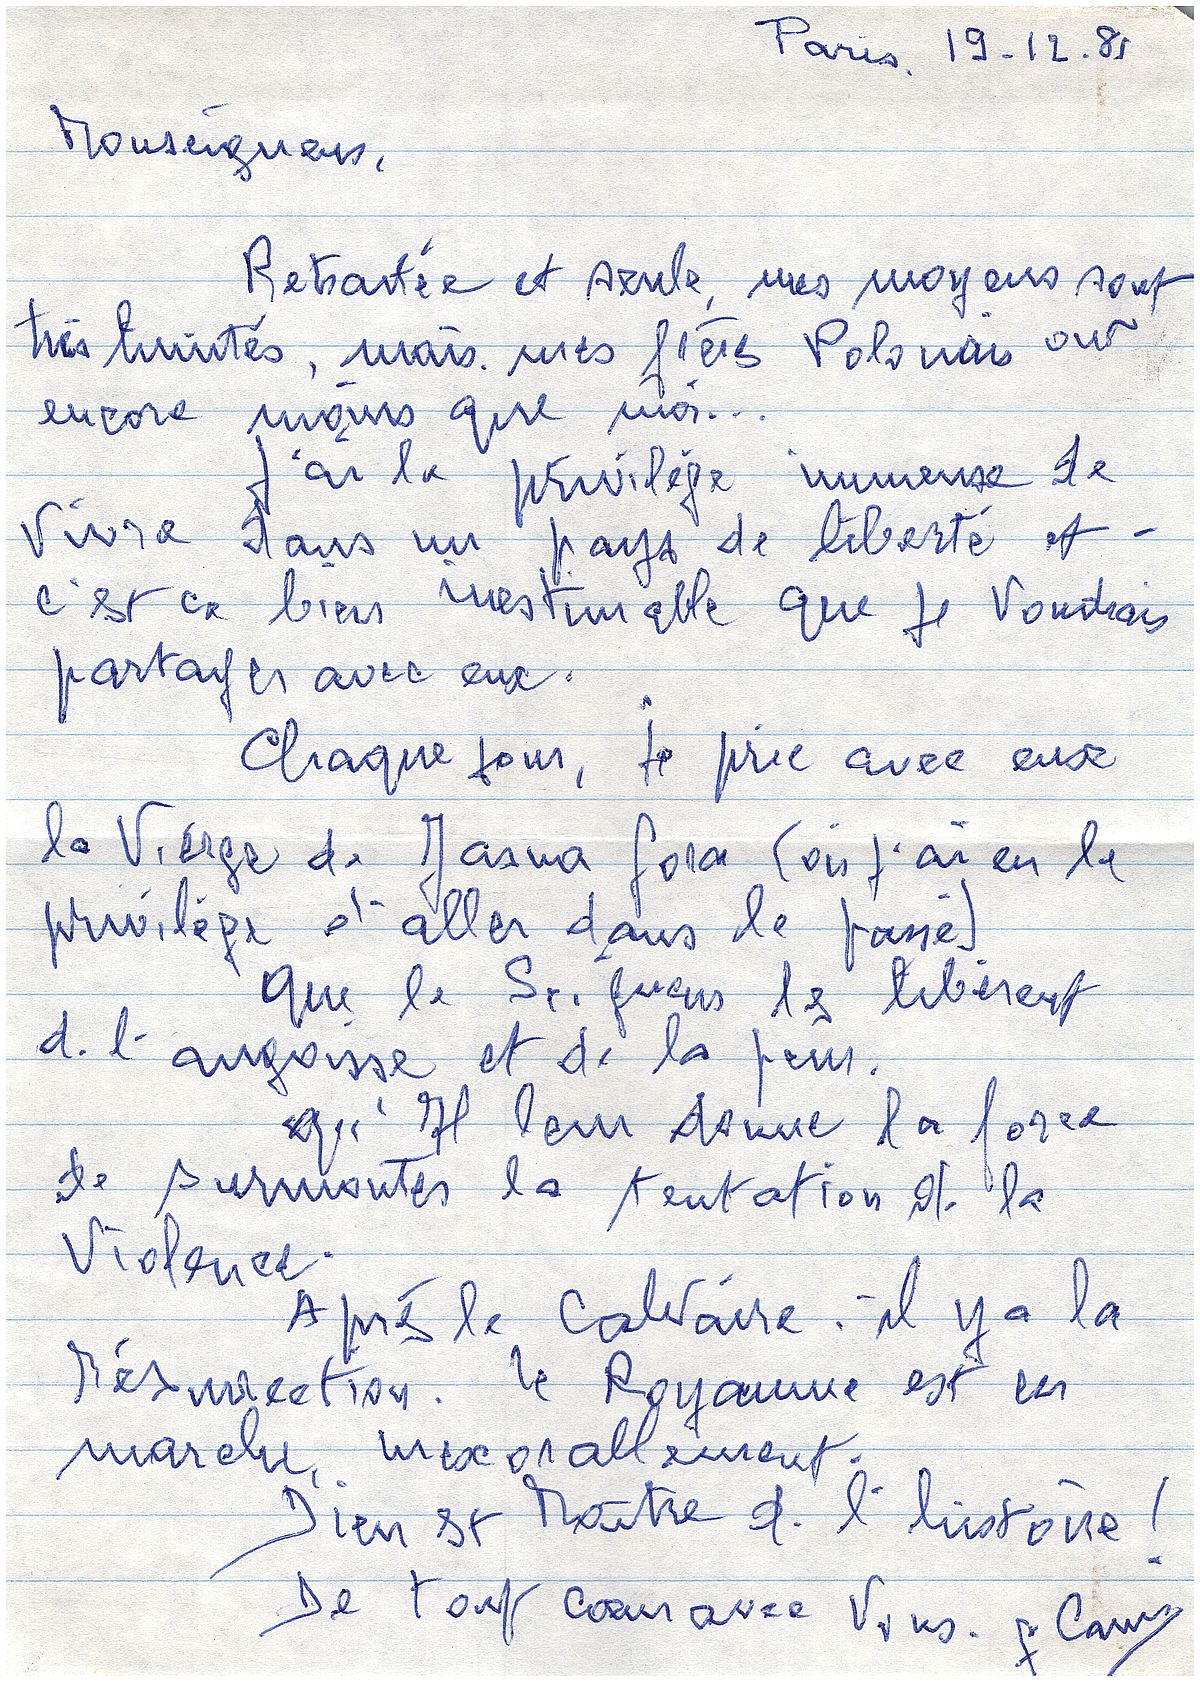 Paris. 19-12-81
Monseigneur,
Retraitée et seule, mes moyens sont
très limités, mais mes frères Polonais ont
encore moins que moi...
J'ai le privilège immense de
vivre dans un pays de liberté et -
c'est ce bien inestimable que je voudrais
partager avec eux.
Chaque jour, je prie avec eux
la Vierge de Jasna Gora (où j'ai eu le
privilège d'aller dans le passé)
Que le Seigneur les libèrent
de l'angoisse et de la peur.
qu'Il leur donne la force
de surmonter la tentation de la
violence.
Après le Calvaire. il y a la
Résurrection. le Royaume est en
marche, inexorablement.
Dieu est Maître de l'histoire !
De tout coeur avec Vous.